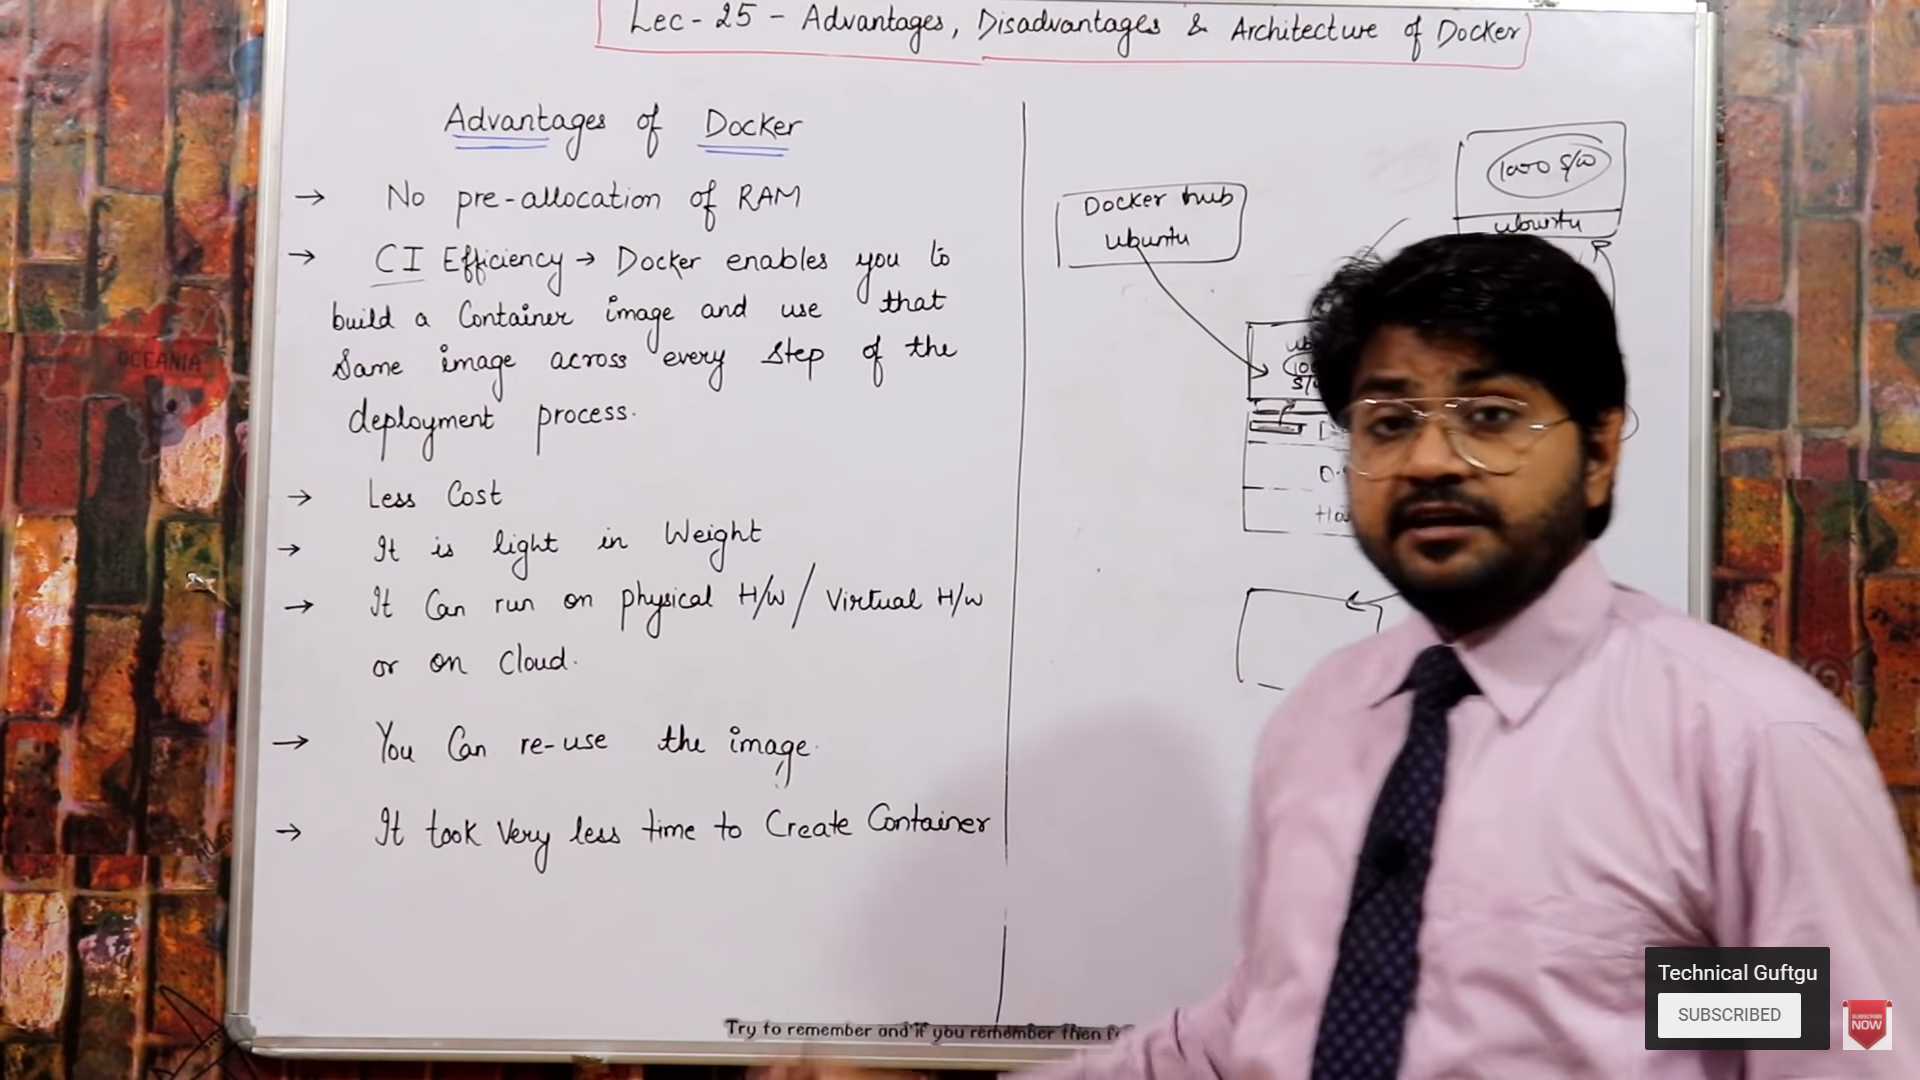 Lec - 25 - Advantages, Disadvantages & Architecture of Docker
Advantages of Docker
→ No pre-allocation of RAM
→ CI Efficiency → Docker enables you to
build a Container image and use that
Same image across every step of the
deployment process.
→ Less Cost
→ It is light in Weight
→ It Can run on physical H/W / Virtual H/W
or on Cloud.
→ You Can re-use the image.
→ It took Very less time to Create Container
Docker hub
ubuntu
1000 S/W
ubuntu
OCEANIA
Try to remember and if you remember then
Technical Guftgu
SUBSCRIBED
SUBSCRIBE
NOW